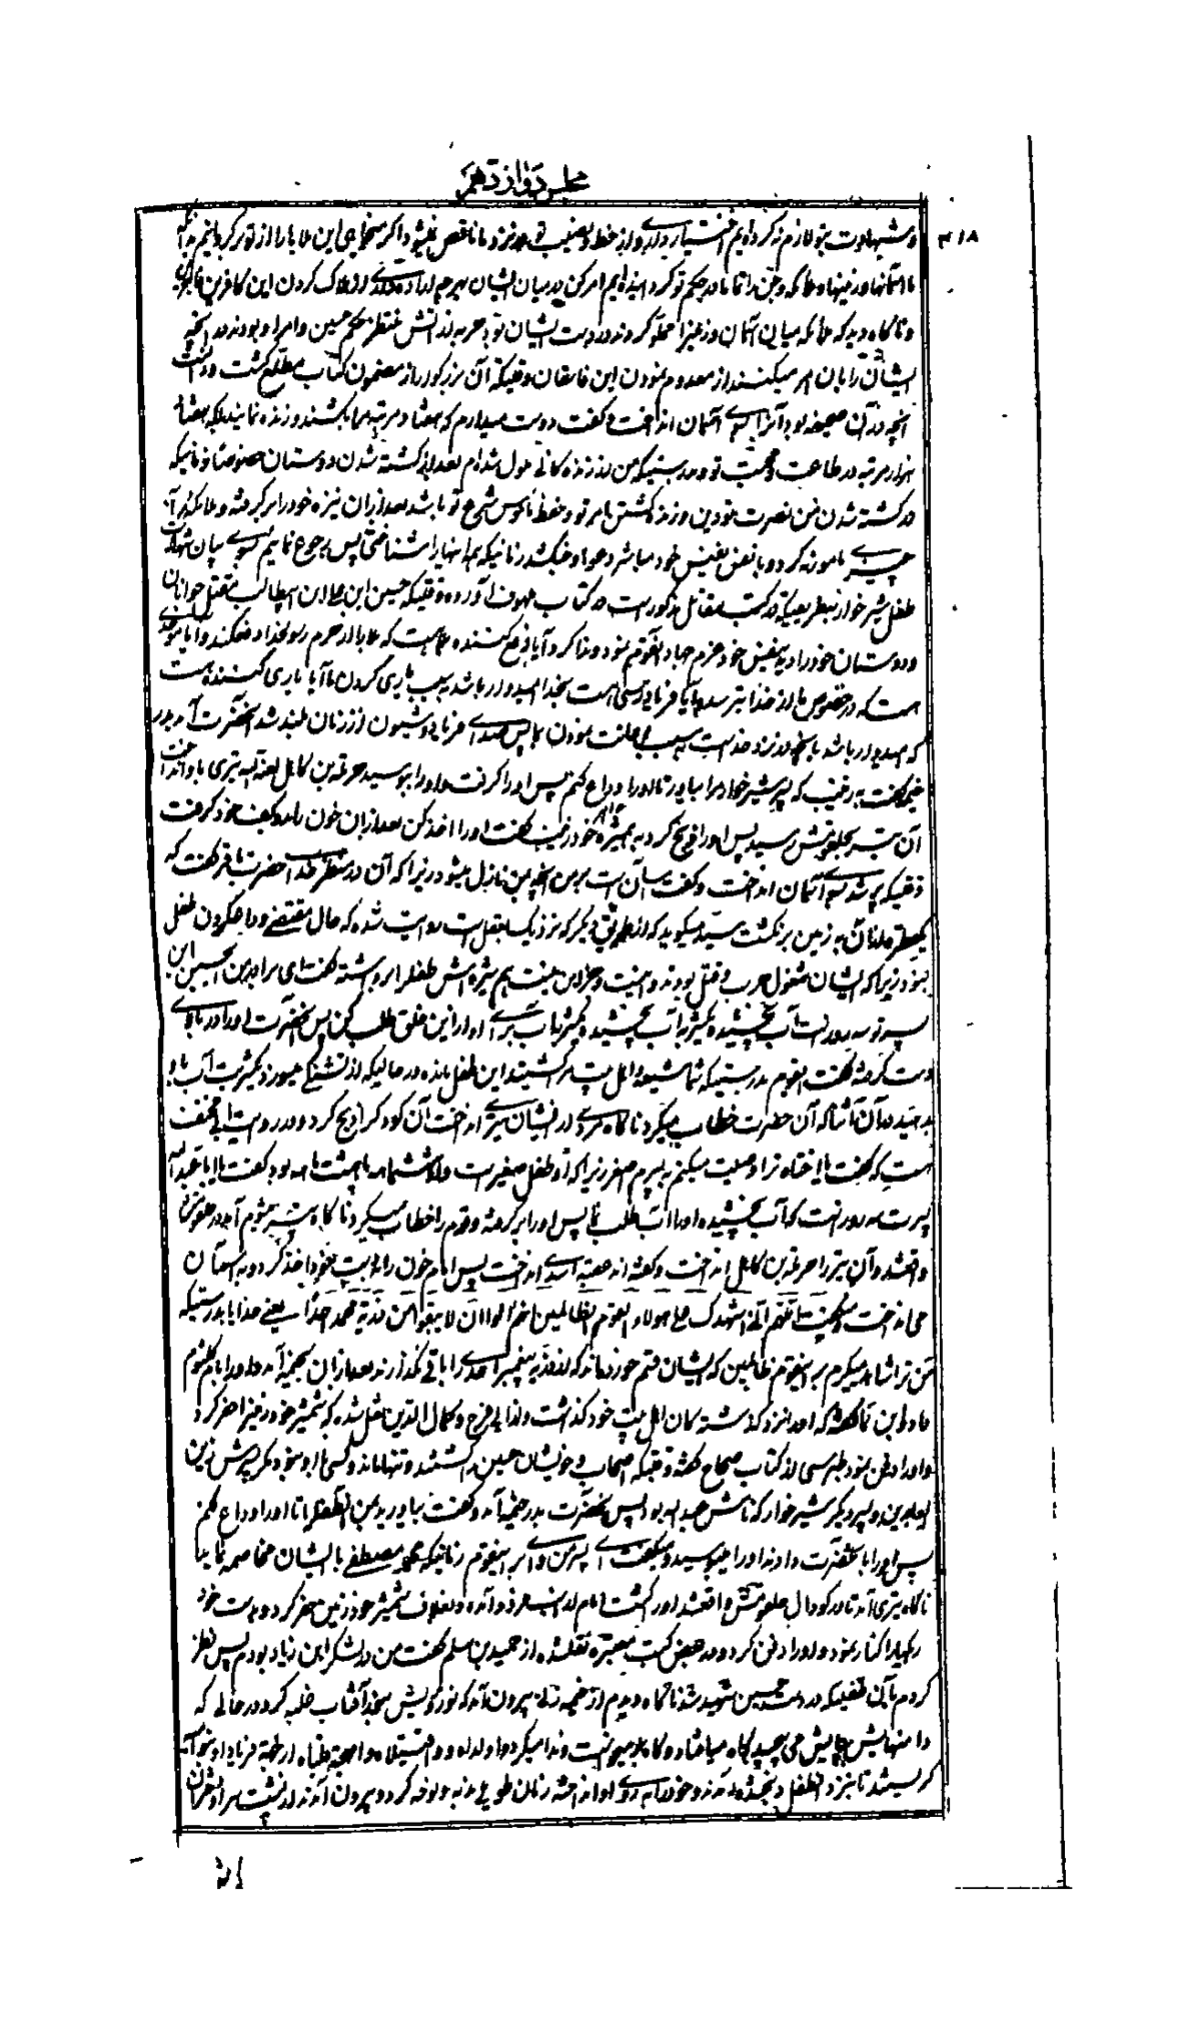 مجلس دوازدهم
۳۱۸
و شهادت بتو لازم نکرده‌ایم اختیار داری و از حظ و نصیب تو در نزد ما ناقص نمیشود اگر میخواهی این بلا را از تو بر گردانیم بدانکه
ما آسمانها و زمینها و ملائکه و جن را تماما در حکم تو گردانیده‌ایم امر کن در میان ایشان بهر چه اراده داری از هلاک کردن این کافرین
و ناگاه دید که ملائکه میان آسمان و زمین را مملو کردند در دست ایشان حربه از آتش منتظر حکم حسین و امر او بودند در آنچه
ایشان را بآن امر میکند از معدوم نمودن این فاسقان وقتیکه آن بزرگوار از مضمون کتاب مطلع گشت و دانست
آنچه در آن صحیفه بود آنرا بسوی آسمان انداخت و گفت دوست میدارم که هفتاد مرتبه مرا بکشند و زنده نمایند بلکه هفتاد
هزار مرتبه در طاعت و محبت تو و بدرستیکه من از زندگانی ملول شده‌ام بعد از کشته شدن دوستان خصوصا زمانیکه
در کشته شدن من نصرت تو دین و زنده گشتن امر تو و حفظ ناموس شرع تو باشد بعد از آن نیزه خود را بر گرفته و ملائکه را
چیزی مامور نکرد و با نفس نفیس خود مباشر دعوا و جنگ شد زمانیکه اینها را شناختی پس رجوع نمائیم بسوی بیان شهادت
طفل شیر خوار بطریقیکه در کتب مقاتل مذکور است در کتاب ملهوف آورده وقتیکه حسین ابن علی بن ابیطالب مقتل جوانان
و دوستان خود را دید بنفس خود عزم جهاد آنقوم نمود و ندا کرد آیا دفع کننده هست که ما را از حرم رسولخدا دفع کند و آیا موحدی
هست که در خصوص ما از خدا بترسد و آیا فریادرسی هست بخدا امیدوار باشد بسبب یاری کردن ما آیا یاری کننده هست
که امیدوار باشد بآنچه در نزد خداست بسبب اعانت نمودن ما پس صدای فریاد و شیون از زنان بلند شد آنحضرت آمد بدر
خیمه گفت بزینب که پسر شیر خوار مرا بیاور تا او را وداع کنم پس او را گرفت و او را بوسید حرمله بن کاهل لعنه الله تیری باو انداخت
آن تیر بحلقومش رسید پس او را ذبح کرد به همشیره خود زینب گفت او را اخذ کن بعد از آن خون را بدو کف خود گرفت
وقتیکه پر شد بسوی آسمان انداخت و گفت آسان است بر من آنچه بمن نازل میشود زیرا که آن در منظر خداست حضرت باقر گفت که
یکقطره از آن به زمین برنگشت سید میگوید که از طریق دیگر که نزدیک بعقل است روایت شده که حال مقتضی وداع کردن طفل
نبود زیرا که ایشان مشغول حرب و قتل بودند و زینب همشیره‌اش طفل را برداشته گفت ای برادر من این
پسر تو سه روز است آب نچشیده یک شربت آب برای او از این خلق طلب کن پس آنحضرت او را در بالای
دست گرفته گفت ایقوم بدرستیکه شما شیعه و اهل بیت مرا کشتید و این طفل مانده در حالیکه از تشنگی میسوزد یک شربت آب باو
بدهید در آن اثنا که آن حضرت خطاب میکرد ناگاه مردی از ایشان تیری انداخت آن کودک را ذبح کرد و در روایت ابی مخنف
است که گفت یا اختاه ترا وصیت میکنم به پسرم اصغر زیرا که او طفل صغیر است و او ششماهه یا هشت ماهه بود گفت یا ابا عبدالله
پسرت سه روز است که آب نچشیده او را آب طلب نما پس او را بر گرفته و قوم را خطاب میکرد ناگاه تیر میشوم آمد در حلقومش
واقع شد و آن تیر را حرمله بن کاهل انداخت و گفته‌اند عقبه اسدی انداخت پس امام خون را بدست خود اخذ کرد و به آسمان
می انداخت و میگفت اللهم انی اشهدک علی هولاء القوم الظالمین انهم الوا ان لا یبقوا من ذریة محمد احدا یعنی خدایا بدرستیکه
من ترا شاهد میگیرم بر اینقوم ظالمین که ایشان قسم خورده‌اند که از ذریه پیغمبر احدی را باقی نگذارند بعد از آن بخیمه آمد و او را بام کلثوم
داد و ابن نما گفته که او را نزد کشته‌گان اهل بیت خود گذاشت و از ابی فرج و کمال الدین نقل شده که بشمشیر خود زمین را حفر کرد
و او را دفن نمود طبرسی در کتاب احتجاج گفته وقتیکه اصحاب و خویشان حسین کشتند و تنها ماند و کسی با او نبود مگر پسرش زین
العابدین و پسر دیگر شیر خوار که نامش عبدالله بود پس آنحضرت بدر خیمه آمد و گفت بیاورید بمن آنطفل را تا او را وداع کنم
پس او را بآنحضرت دادند او را میبوسید و میگفت ای پسر من وای بر اینقوم زمانیکه محمد مصطفی با ایشان مخاصمه نماید
ناگاه تیری آمد تا در گودال حلقومش واقع شد او را کشت امام از اسب فرود آمد و بغلاف شمشیر خود زمین حفر کرد و بدست خود
ریگها را کنار نمود و او را دفن کرد و در بعض کتب معتبره نقلشده از حمید بن مسلم گفت من در لشکر ابن زیاد بودم پس نظر
کردم بآن طفلیکه در دست حسین شهید شد ناگاه دیدم از خیمه زنی بیرون آمد که نور رویش بنور آفتاب غلبه کرد در حالی که
دامنهایش بپایش می پیچید گاه میافتاد و گاه بر میخواست و ندا میکرد وا ولداه وا قتیلاه وا مهجة قلباه
کریستند تا نزد آنطفل و خود را به روی او انداخته زمان طویلی ندبه و نوحه کرد و بیرون آمدند از پشت سر او دختران